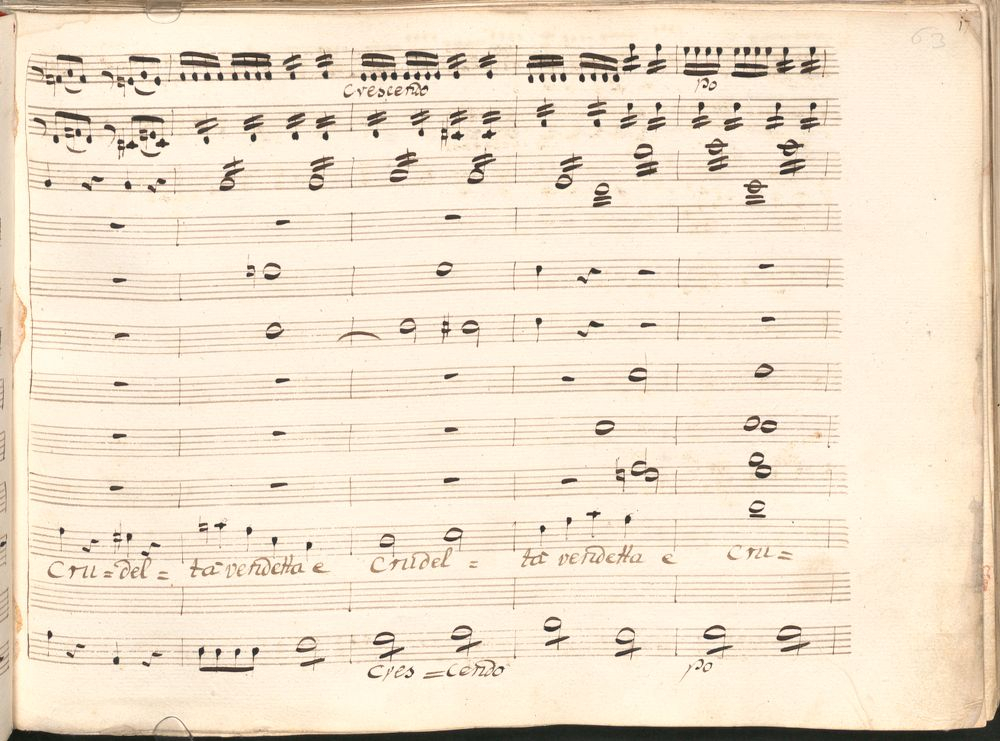 63
Crescendo
po
Cru=del= ta vendetta e Crudel = ta vendetta e Cru=
Cres=cendo
po